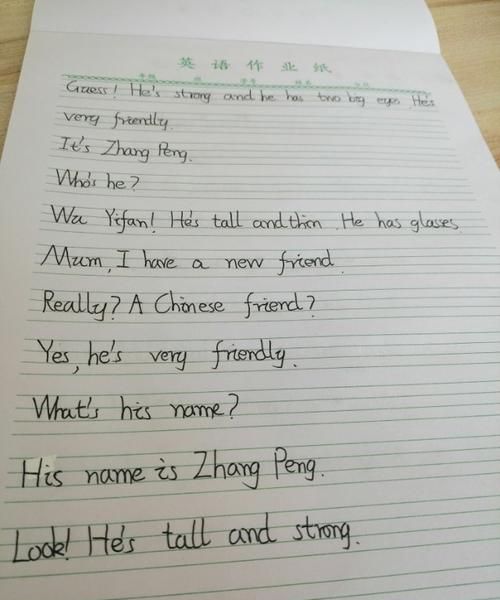 英语作业纸
Guess! He's strong and he has two big eyes. He's
very friendly.
It's Zhang Peng.
Who's he?
Wu Yifan! He's tall and thin. He has glasses.
Mum, I have a new friend.
Really? A Chinese friend?
Yes, he's very friendly.
What's his name?
His name is Zhang Peng.
Look! He's tall and strong.